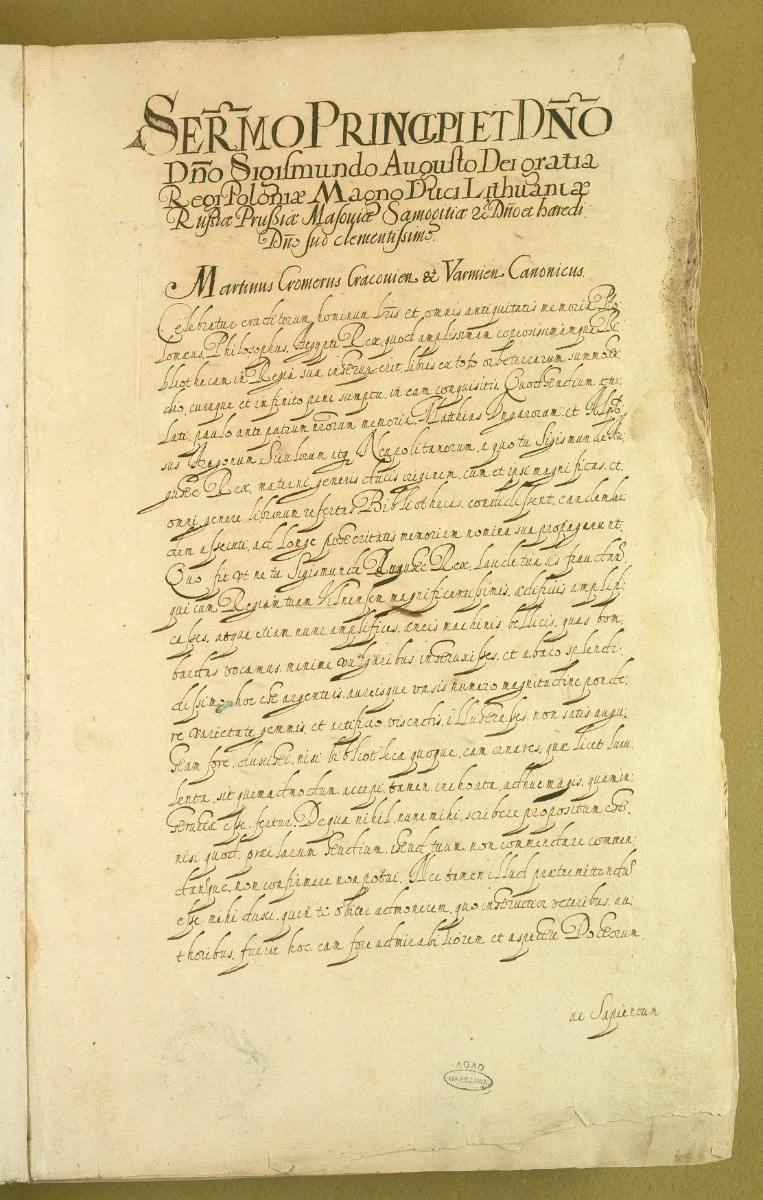 1
SER̃MO PRINCIPI ET DÑO
Dño Sigismundo Augusto Dei gratia
Regi Poloniæ Magno Duci Lithuaniæ
Russiæ Prussiæ Masoviæ Samogitiæ &c Dño et hæredi
Dño suo clementissimo.
Martinus Cromerus Cracovien & Varmien Canonicus.
Celebratur eruditorum hominum lr̃is et omnis antiquitatis memoria Pto,
lomeus Philosophus, Aegypti Rex, quod amplissimam copiosissimamque Bi,
bliothecam in Regia sua instruxerit, libris ex toto orbe terrarum summo stu,
dio, curaque et infinito pene sumptu, in eam conquisitis. Quod studium æmu,
lati, paulo ante patrum nr̃orum memoria, Matthias Ungarorum, et Alphō,
sus Aragonum Siculorum itq Neapolitanorum, a quo tu Sigismunde Au,
guste Rex, materni generis ducis originem, cum et ipsi magnificas, et
omni genere librorum refertas Bibliothecas, condidissent, eandem lau,
dem assecuti, ad longe posteritatis memoriam nomina sua propagarunt,
Quo fit ut ne tu Sigismunde Auguste Rex, laude tua sis fraudatus
qui cum Regiam tuam Vilnensem magnificentissimis, ædificiis amplifi,
casses, atque etiam nunc amplifices, æneis machinis bellicis, quas bom,
bardas vocamus, minime vulgaribus instruxisses, et abaco splendi,
dissimo, hoc est argenteis, aureisque vasis numero magnitudine ponde,
re varietate gemmis, et artificio visendis, illustrasses, non satis augu,
stam fore, duxisti, nisi bibliotheca quoque, eam ornares, quæ licet lucu,
lenta, sit quemadmodum accepi, tamen inchoata, adhuc magis, quam in,
structa esse, fertur. De qua nihil, nunc mihi, scribere propositum est,
nisi quod, præclarum studium, istud tuum non commendare commen,
datque, non confirmare non potui, Nec tamen illud prætermittendū
esse mihi duxi, quin te obiter admonerem, quo instructior veteribus, au,
thoribus, fuerit hoc eam fore admirabiliorem et aspectu Doctorum
ac Sapientum
AGAD
WARSZAWA